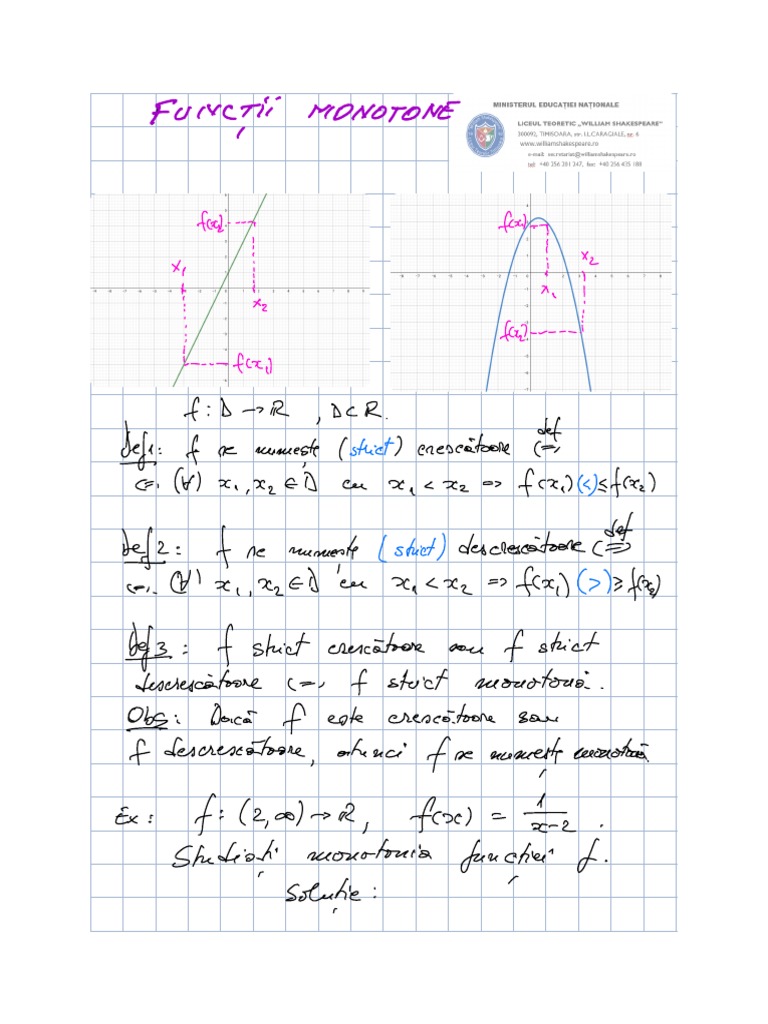 FUNCȚII MONOTONE
MINISTERUL EDUCAȚIEI NAȚIONALE
LICEUL TEORETIC „WILLIAM SHAKESPEARE”
300092, TIMISOARA, str. I.L.CARAGIALE, nr. 6
www.williamshakespeare.ro
tel: +40 256 201 247, fax: +40 256 435 188
f(x₂)
x₁
x₂
f(x₁)
f(x₁)
x₂
x₁
f(x₂)
f : D → R , D⊂R.
Def1: f se numește (strict) crescătoare def <=>
<=> (∀) x₁, x₂ ∈ D cu x₁ < x₂ => f(x₁) (<) ≤ f(x₂)
Def 2: f se numește (strict) descrescătoare def <=>
<=> (∀) x₁, x₂ ∈ D cu x₁ < x₂ => f(x₁) (>) ≥ f(x₂)
Def 3: f strict crescătoare sau f strict
descrescătoare <=> f strict monotonă.
Obs: Dacă f este crescătoare sau
f descrescătoare, atunci f se numește monotonă
Ex: f : (2,∞) → R, f(x) = 1/(x-2) .
Studiați monotonia funcției f.
Soluție: